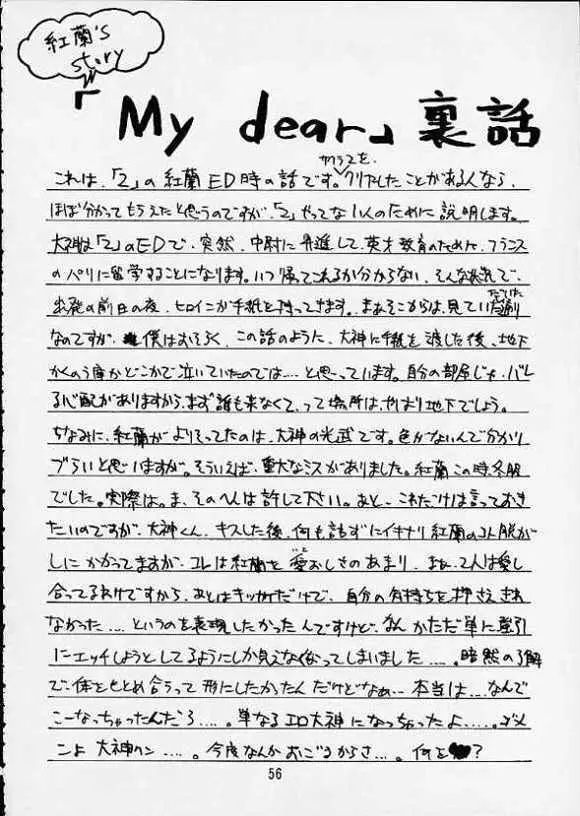 紅蘭's
story
「My dear」裏話
クリアを
これは、「2」の紅蘭ED時の話です。クリアしたことがある人なら、
ほぼ分かってもらえたと思うのですが、「2」やってない人のために説明します。
大神は「2」のEDで、突然、中尉に昇進して、英才教育のために、フランス
のパリに留学することになります。いつ帰ってこれるか分からない、そんな状況で、
出発の前日の夜、ヒロインが手紙を持ってきます。まあそこからは、見ていただいた通り
なのですが、僕はおそらく、この話のように、大神に手紙を渡した後、地下
かくのう庫かどこかで泣いていたのでは…と思っています。自分の部屋じゃ、バレ
る心配がありますから、まず誰も来なくて、って場所は、やはり地下でしょう。
ちなみに、紅蘭がよりそってたのは、大神の光武です。色がないんで分かり
づらいと思いますが。そういえば、重大なミスがありました。紅蘭この時、冬服
でした。実際は。ま、そのへんは許して下さい。あと、これだけは言っておき
たいのですが、大神くん、キスした後、何も話さずにイキナリ紅蘭のコト脱が
しにかかってますが、コレは紅蘭を愛おしさのあまり、まあ、2人は愛し
合ってるわけですから、あとはキッカケだけで、自分の気持ちを押さえきれ
なかった…というのを表現したかったんですけど、なんかただ単に強引
にエッチしようとしてるようにしか見えなくなってしまいました…。暗然の了解
で、体をもとめ合うって形にしたかったんだけどなぁ…本当は…なんで
こーなっちゃったんだろ…。単なるエロ大神になっちゃったよ…。ゴメ
ンよ大神クン…。今度なんかおごるからさ…。何を♥?
56